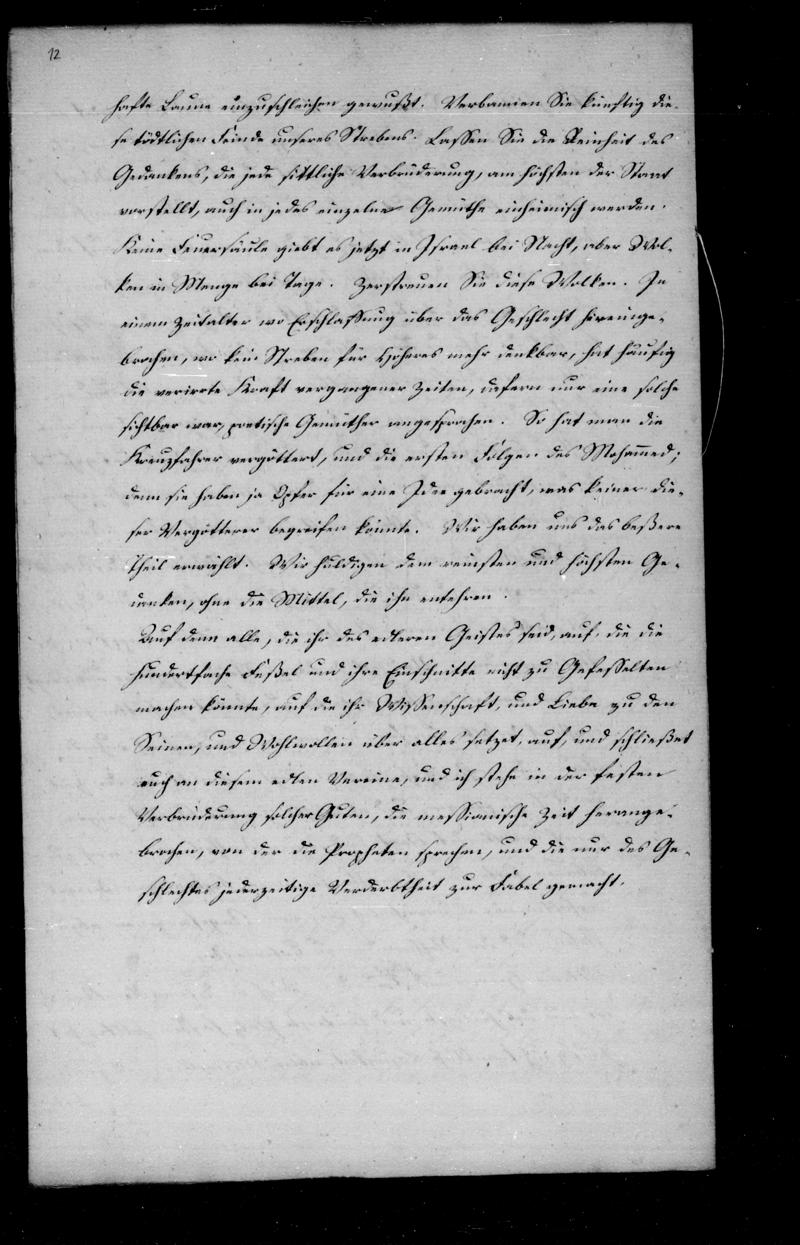 12
hafte Laune einzuschleichen gewußt. Verbannen Sie künftig die-
se tödtlichen Feinde unseres Strebens. Lassen Sie die Reinheit des
Gedankens, die jede sittliche Verbrüderung, am höchsten der Staat
vorstellt, auch in jedes einzelne Gemüthe einheimisch werden.
Keine Feuersäule giebt es jetzt in Israel bei Nacht, aber Wol-
ken in Menge bei Tage. Zerstreuen Sie diese Wolken. In
einem Zeitalter wo Erschlaffung über das Geschlecht hereinge-
brochen, wo kein Streben für Höheres mehr denkbar, hat häufig
die verirrte Kraft vergangener Zeiten, dafern nur eine solche
sichtbar war, poetische Gemüther angesprochen. So hat man die
Kreuzfahrer vergöttert, und die ersten Folgen des Mohamed;
denn sie haben ja Opfer für eine Idee gebracht, was keiner die-
ser Vergötterer begreifen könnte. Wir haben uns das beßere
Theil erwählt. Wir huldigen dem reinsten und höchsten Ge-
danken, ohne die Mittel, die ihn entehren.
Auf denn alle, die ihr des edleren Geistes seid, auf, die die
hundertfache Feßel und ihre Einschnitte nicht zu Gefesselten
machen könnte, auf die ihr Wissenschaft, und Liebe zu den
Seinen, und Wohlwollen über alles setzet, auf, und schließet
euch an diesem edlen Vereine, und ich sehe in der festen
Verbrüderung solcher Guten, die messianische Zeit herange-
brochen, von der die Propheten sprechen, und die nur des Ge-
schlechtes jederzeitige Verderbtheit zur Fabel gemacht.